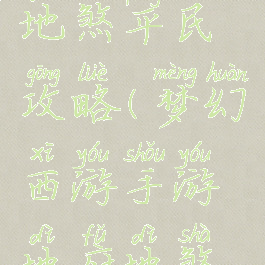 地煞平民
gōng lüè mèng huàn
攻略(梦幻
xī yóu shǒu yóu
西游手游